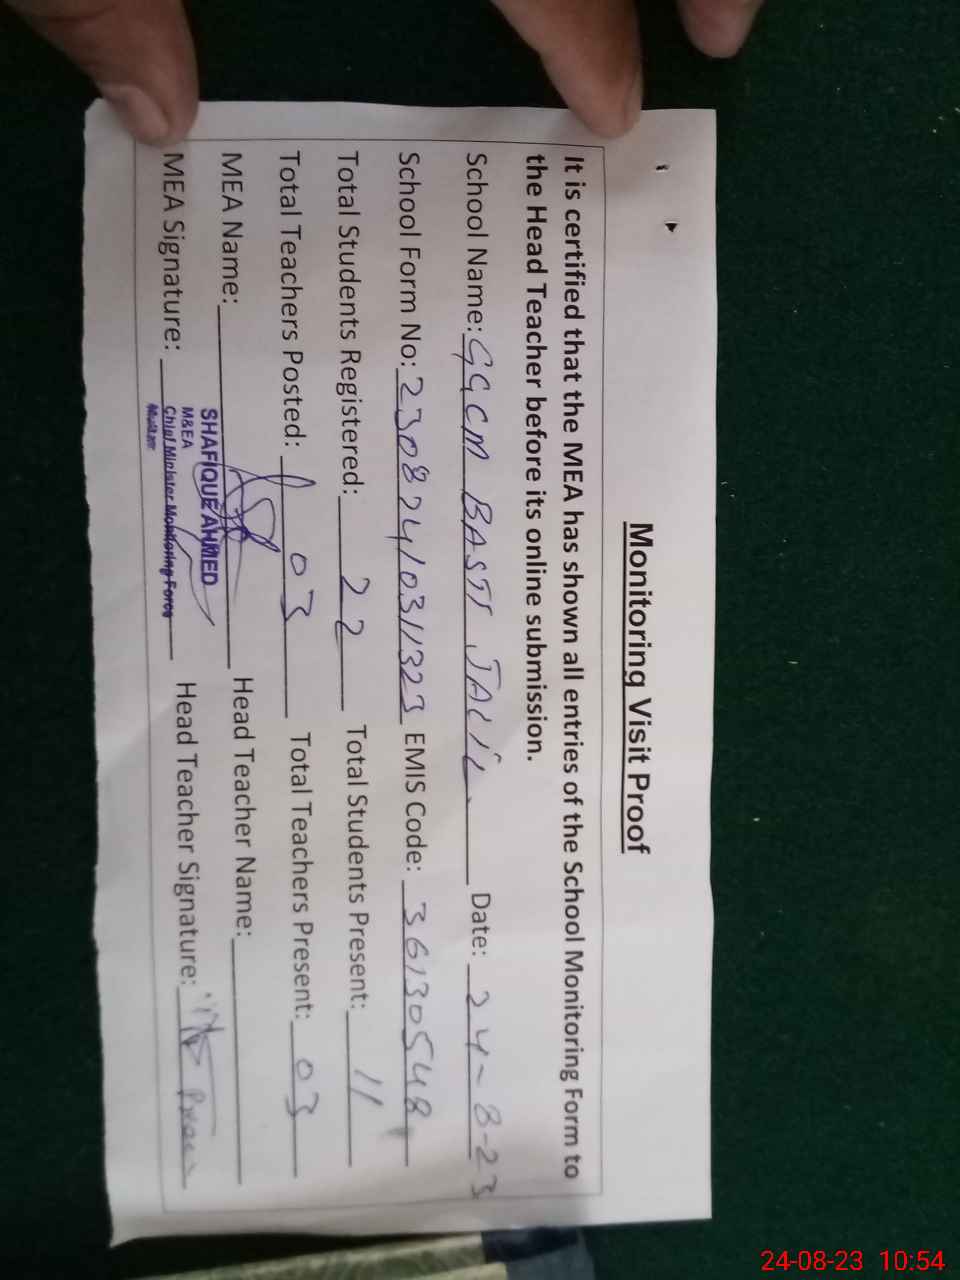 Monitoring Visit Proof
It is certified that the MEA has shown all entries of the School Monitoring Form to
the Head Teacher before its online submission.
School Name: GGCM BASTI JALIL. Date: 24-8-23
School Form No: 23082410311323 EMIS Code: 36130548
Total Students Registered: 22 Total Students Present: 11
Total Teachers Posted: 03 Total Teachers Present: 03
MEA Name: SHAFIQUE AHMED Head Teacher Name:
M&EA
MEA Signature: Chief Minister Monitoring Force Head Teacher Signature:
Multan
24-08-23 10:54